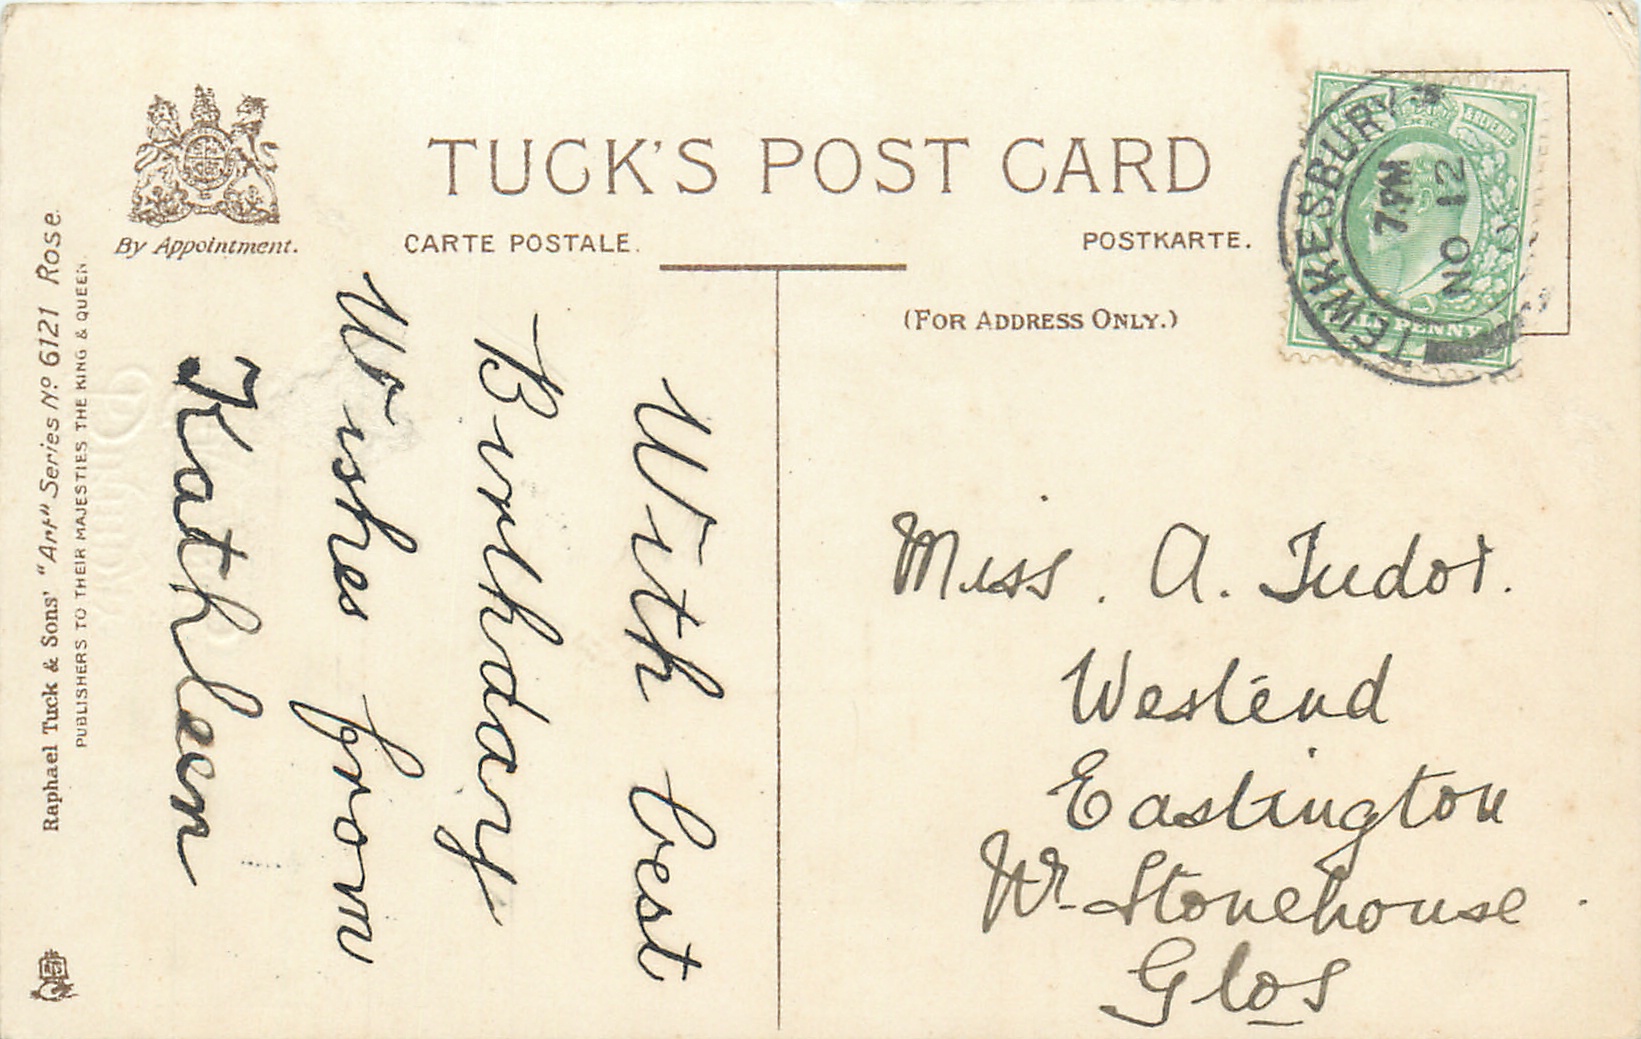 TUCK'S POST CARD
By Appointment.
CARTE POSTALE.
POSTKARTE.
(FOR ADDRESS ONLY.)
& REVENUE
PENNY
TEWKESBURY
7.PM
NO 12
With best
Birthday
Wishes from
Kathleen
Miss. A. Tudor.
Westend
Eastington
Nr. Stonehouse.
Glos
Raphael Tuck & Sons' "Art" Series No 6121 Rose.
PUBLISHERS TO THEIR MAJESTIES THE KING & QUEEN.